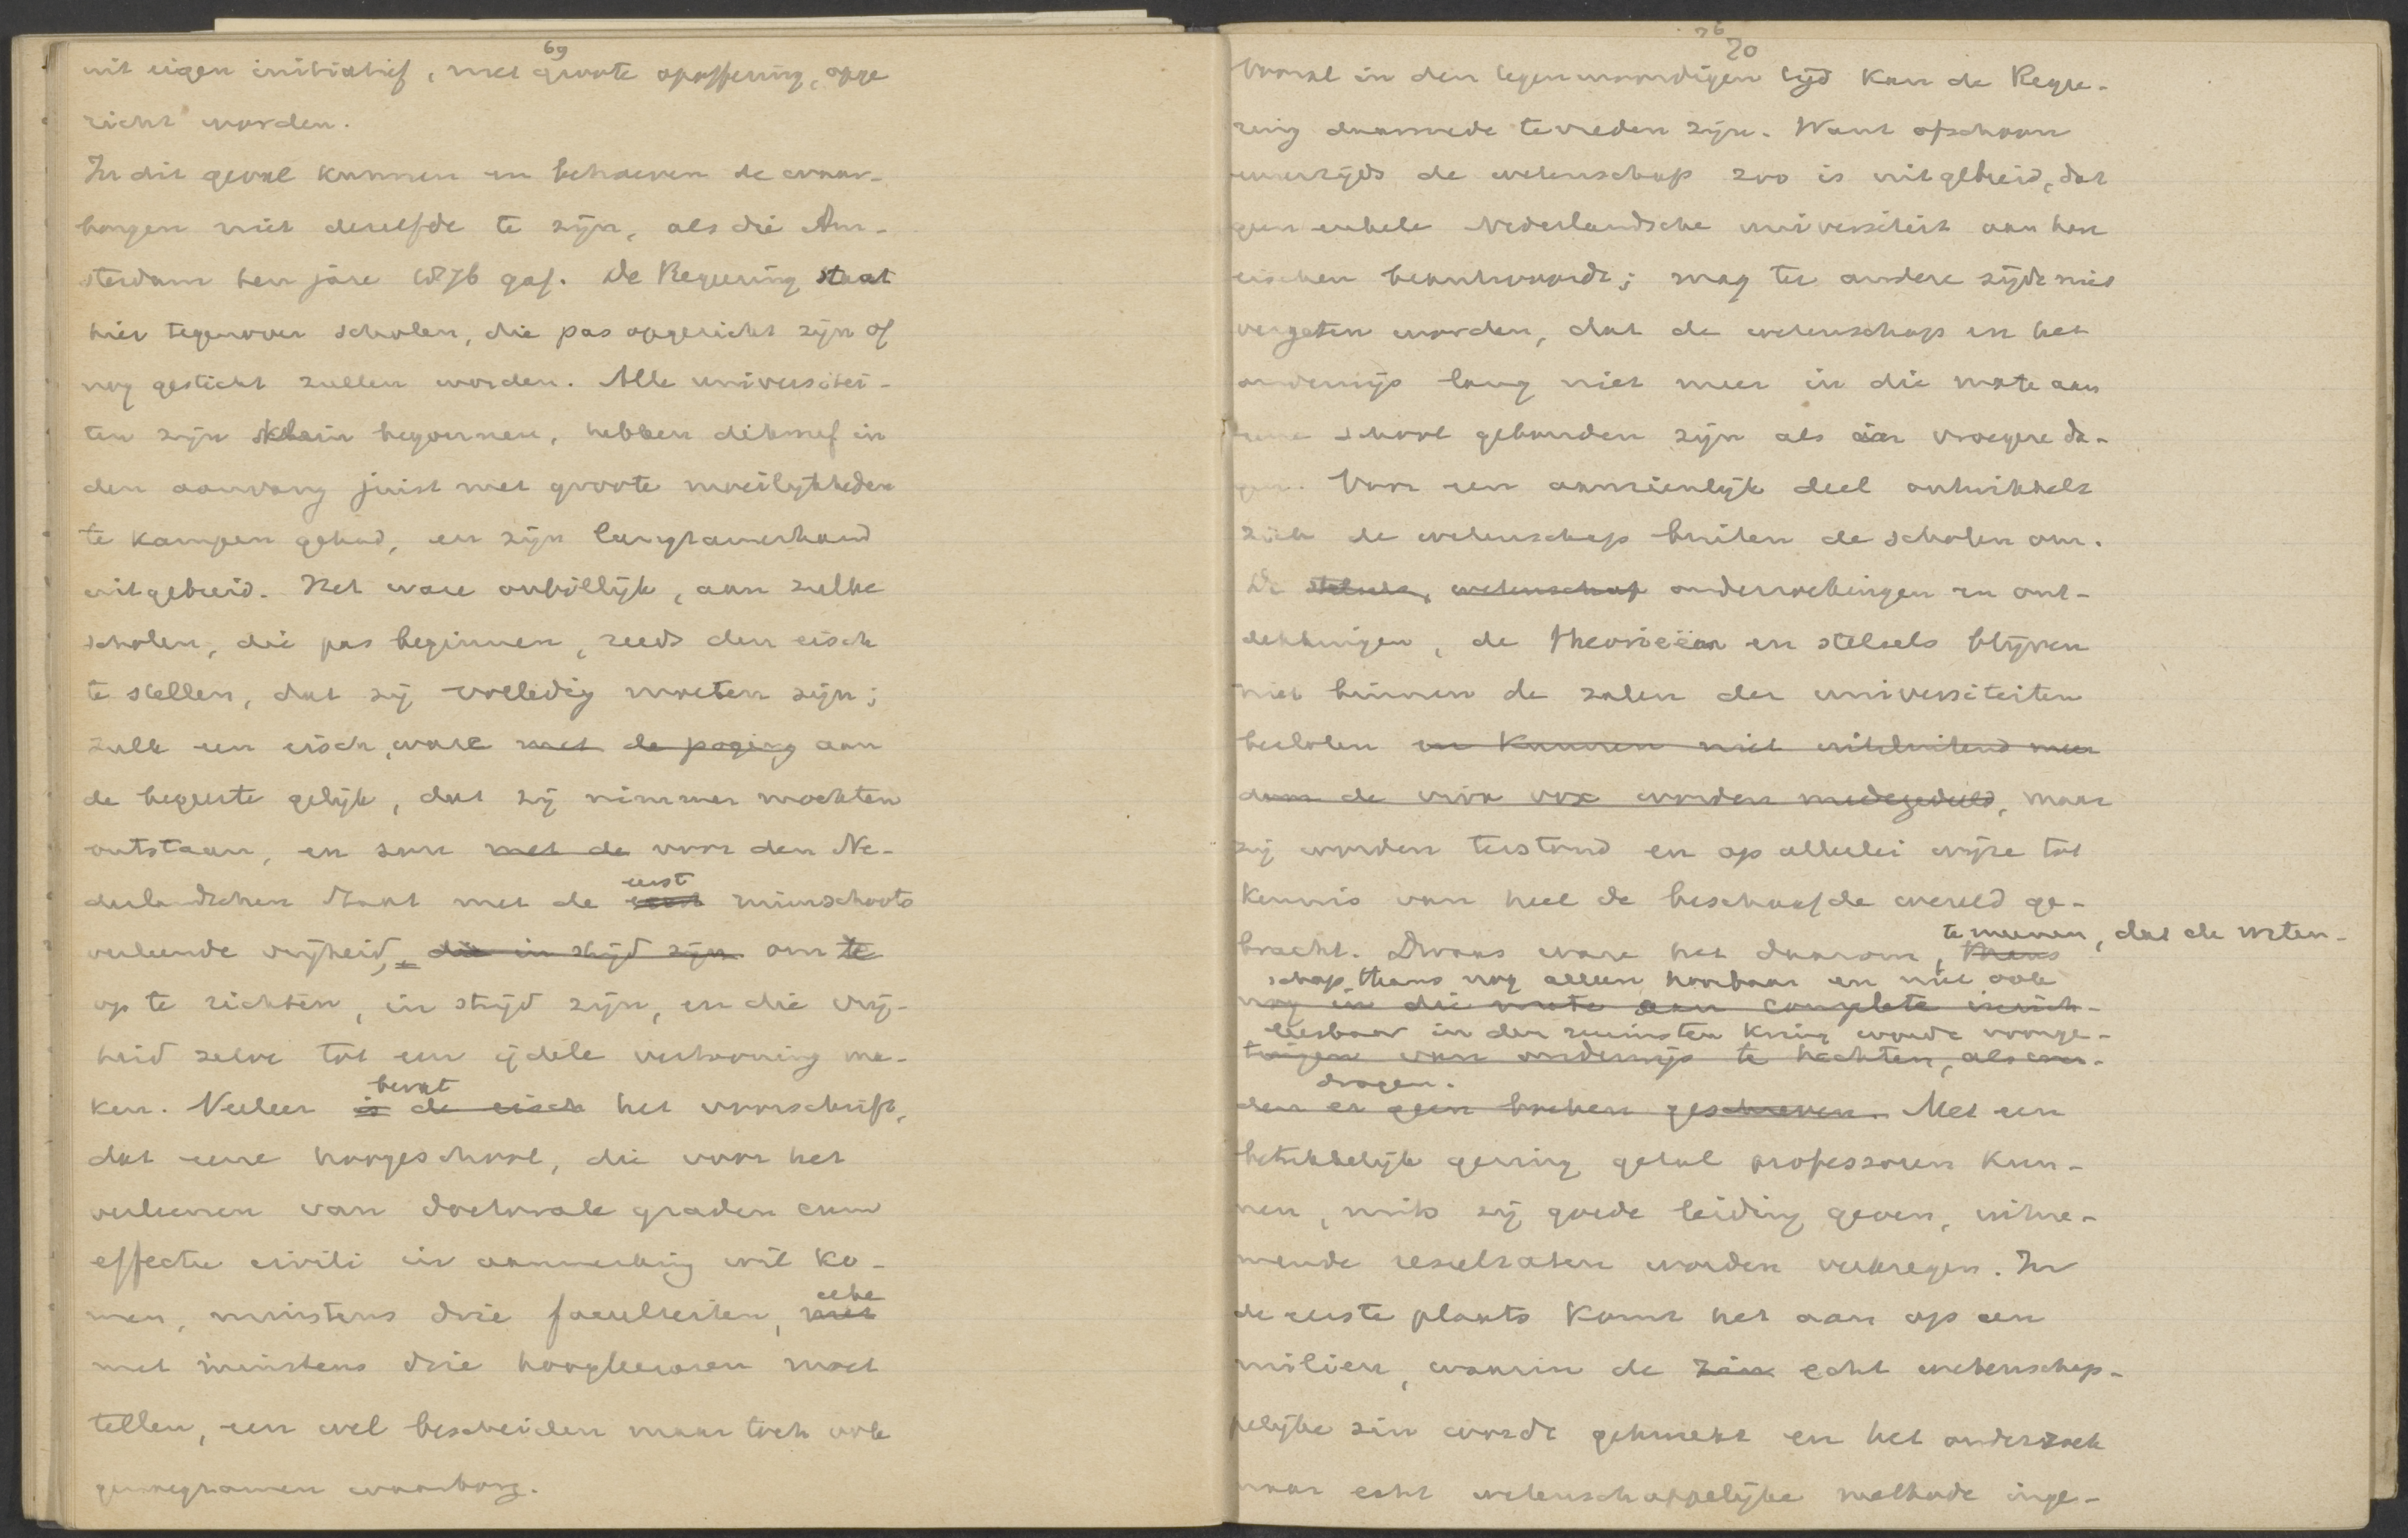 69
uit eigen initiatief, met groote opoffering, opge
richt worden.
In dit geval kunnen en behoeven de waar-
borgen niet dezelfde te zijn, als die Am-
sterdam ten jare 1876 gaf. De Regeering staat
hier tegenover scholen, die pas opgericht zijn of
nog gesticht zullen worden. Alle universitei-
ten zijn klein begonnen, hebben dikwerf in
den aanvang juist met groote moeilijkheden
te kampen gehad, en zijn langzamerhand
uitgebreid. Het ware onbillijk, aan zulke
scholen, die pas beginnen, reeds den eisch
te stellen, dat zij volledig moeten zijn;
zulk een eisch ware met de poging aan
de begeerte gelijk, dat zij nimmer mochten
ontstaan, en zou met de voor den Ne-
eerst
derlandschen Staat met de eerst ruimschoots
verleende vrijheid, die in strijd zijn om te
op te richten, in strijd zijn, en die vrij-
heid zelve tot een ijdele vertooning ma-
bevat
ken. Veeleer is de eisch het voorschrift,
dat eene hoogeschool, die voor het
verleenen van doctorale graden cum
effectu civili in aanmerking wil ko-
elke
men, minstens drie faculteiten, met
met minstens drie hoogleeraren moet
tellen, een wel bescheiden maar toch ook
genoegzamen waarborg.
76
70
Vooral in den tegenwoordigen tijd kan de Regee-
ring daarmede tevreden zijn. Want ofschoon
eenerzijds de wetenschap zoo is uitgebreid, dat
geen enkele Nederlandsche universiteit aan haar
eischen beantwoordt; mag ter andere zijde niet
vergeten worden, dat de wetenschap en het
onderwijs lang niet meer in die mate aan
eene school gebonden zijn als in vroegere da-
gen. Voor een aanzienlijk deel ontwikkelt
zich de wetenschap buiten de scholen om.
De stelsels, wetenschap onderzoekingen en ont-
dekkingen, de theorieën en stelsels blijven
niet binnen de zalen der universiteiten
besloten en kunnen niet uitsluitend meer
door de viva vox worden medegedeeld, maar
zij worden terstond en op allerlei wijze tot
kennis van heel de beschaafde wereld ge-
te meenen, dat de weten-
bracht. Dwaas ware het daarom, thans
schap thans nog alleen hoorbaar en niet ook
nog in die mate aan complete inrich-
leesbaar in den ruimsten kring wordt voorge-
tingen van onderwijs te hechten, als wer-
dragen.
den er geen boeken geschreven. Met een
betrekkelijk gering getal professoren kun-
nen, mits zij goede leiding geven, uitne-
mende resultaten worden verkregen. In
de eerste plaats komt het aan op een
milieu, waarin de zin echt wetenschap-
pelijke zin wordt gekweekt en het onderzoek
naar echt wetenschappelijke methode inge-